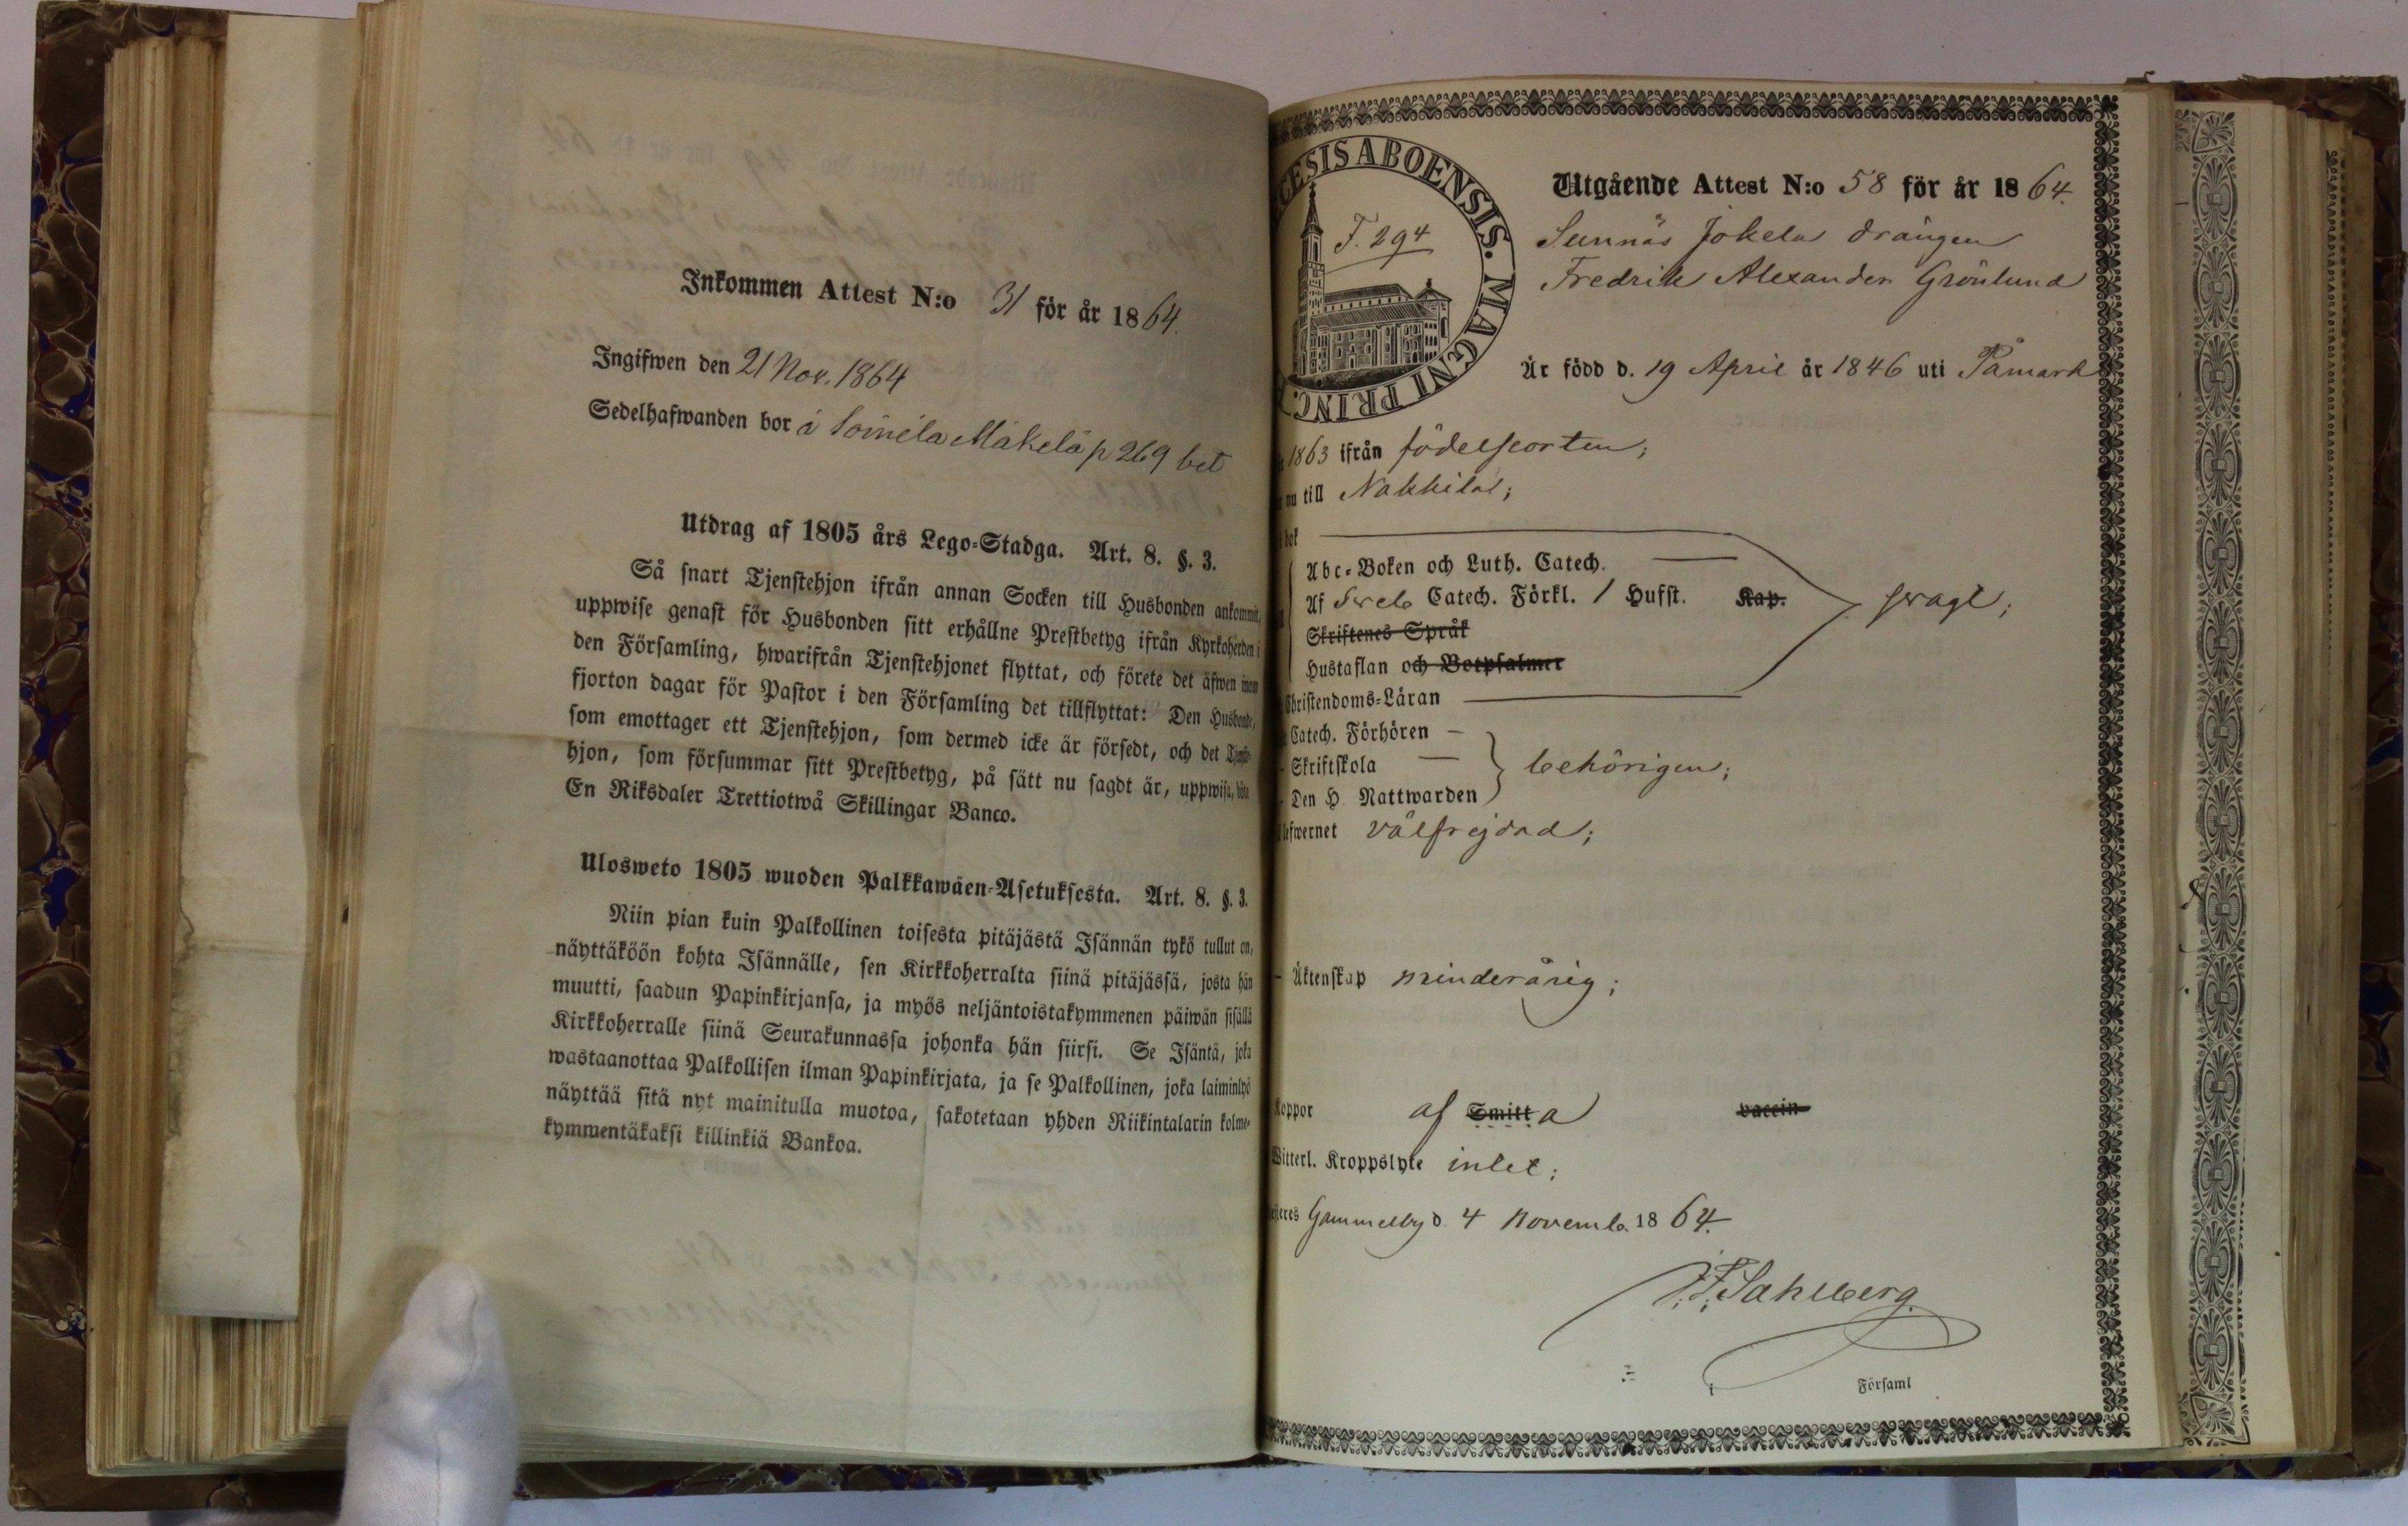 Inkommen Attest N:o 31 för år 1864.
Ingifwen den 21 Nov. 1864
Sedelhafwanden bor å Soinila Mäkelä p 269 bet
Utdrag af 1805 års Lego-Stadga. Art. 8. §. 3.
Så snart Tjenstehjon ifrån annan Socken till Husbonden ankommit,
uppwise genast för Husbonden sitt erhållne Prestbetyg ifrån Kyrkoherden i
den Församling, hwarifrån Tjenstehjonet flyttat, och förete det äfwen inom
fjorton dagar för Pastor i den Församling det tillflyttat: Den Husbonde,
som emottager ett Tjenstehjon, som dermed icke är försedt, och det Tjenste-
hjon, som försummar sitt Prestbetyg, på sätt nu sagdt är, uppwisa, böte
En Riksdaler Trettiotwå Skillingar Banco.
Ulosweto 1805 wuoden Palkkawäen-Asetuksesta. Art. 8. §. 3.
Niin pian kuin Palkollinen toisesta pitäjästä Isännän tykö tullut on,
näyttäköön kohta Isännälle, sen Kirkkoherralta siinä pitäjässä, josta hän
muutti, saadun Papinkirjansa, ja myös neljäntoistakymmenen päiwän sisällä
Kirkkoherralle siinä Seurakunnassa johonka hän siirsi. Se Isäntä, joka
wastaanottaa Palkollisen ilman Papinkirjata, ja se Palkollinen, joka laiminlyö
näyttää sitä nyt mainitulla muotoa, sakotetaan yhden Riikintalarin kolme-
kymmentäkaksi killinkiä Bankoa.
CESIS ABOENSIS. MAGNI PRINC.
F. 294
Utgående Attest N:o 58 för år 1864.
Sunnäs Jokela drängen
Fredrik Alexander Grönlund
Är född d. 19 April år 1846 uti Påmark
1863 ifrån födelseorten;
nu till Nakkila;
bok
Abc-Boken och Luth. Catech.
Af Sveb Catech. Förkl. / Hufst. Kap. svagt;
Skriftenes Språk
Hustaflan och Botpsalmer
Christendoms-Läran
Catech. Förhören
- Skriftskola behörigen;
- Den H. Nattwarden
lefwernet välfrejdad;
- Äktenskap minderårig;
Koppor af Smitta vaccin
Witterl. Kroppslyte intet;
Gammelby d. 4 Novemb. 1864.
J. F. Sahlberg.
Församl